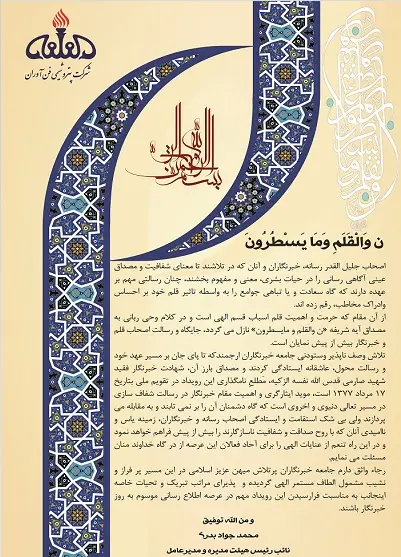 شرکت پتروشیمی فن آوران
ن وَالْقَلَمِ وَمَا يَسْطُرُونَ
اصحاب جلیل القدر رسانه، خبرنگاران و آنان که در تلاشند تا معنای شفافیت و مصداق
عینی آگاهی رسانی را در حیات بشری، معنی و مفهوم بخشند، چنان رسالتی مهم بر
عهده دارند که گاه سعادت و یا تباهی جوامع را به واسطه تاثیر قلم خود بر احساس
وادراک مخاطب، رقم زده اند.
از آن مقام که حرمت و اهمیت قلم اسباب قسم الهی است و در کلام وحی ربانی به
مصداق آیه شریفه «ن والقلم و مایسطرون» نازل می گردد، جایگاه و رسالت اصحاب قلم
و خبرنگار بیش از پیش نمایان است.
تلاش وصف ناپذیر وستودنی جامعه خبرنگاران ارجمندکه تا پای جان بر مسیر عهد خود
و رسالت محول، عاشقانه ایستادگی کردند و مصداق بارز آن، شهادت خبرنگار فقید
شهید صارمی قدس الله نفسه الزکیه، مطلع نامگذاری این رویداد در تقویم ملی بتاریخ
۱۷ مرداد ۱۳۷۷ است، موید ایثارگری و اهمیت مقام خبرنگار در رسالت شفاف سازی
در مسیر تعالی دنیوی و اخروی است که گاه دشمنان آن را بر نمی تابند و به مقابله می
پردازند ولی بی شک استقامت و ایستادگی اصحاب رسانه و خبرنگاران، زمینه یاس و
ناامیدی آنان که با روح صداقت و شفافیت ناسازگارند را بیش از پیش فراهم خواهد نمود
و در این راه تنعم از عنایات الهی را برای آحاد فعالان این عرصه از در گاه خداوند منان
مسئلت می نمایم.
رجاء واثق دارم جامعه خبرنگاران پرتلاش میهن عزیز اسلامی در این مسیر پر فراز و
نشیب مشمول الطاف مستمر الهی گردیده و پذیرای مراتب تبریک و تحیات خاصه
اینجانب به مناسبت فرارسیدن این رویداد مهم در عرصه اطلاع رسانی موسوم به روز
خبرنگار باشند.
و من الله توفیق
محمد جواد بدری
نائب رئیس هیئت مدیره و مدیرعامل